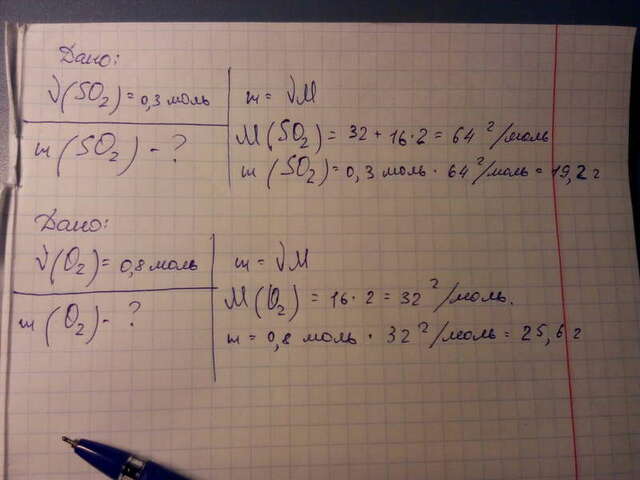 Дано:
ν(SO₂) = 0,3 моль
m = νM
m(SO₂) - ?
M(SO₂) = 32 + 16·2 = 64 г/моль
m(SO₂) = 0,3 моль · 64 г/моль = 19,2 г
Дано:
ν(O₂) = 0,8 моль
m = νM
m(O₂) - ?
M(O₂) = 16·2 = 32 г/моль.
m = 0,8 моль · 32 г/моль = 25,6 г